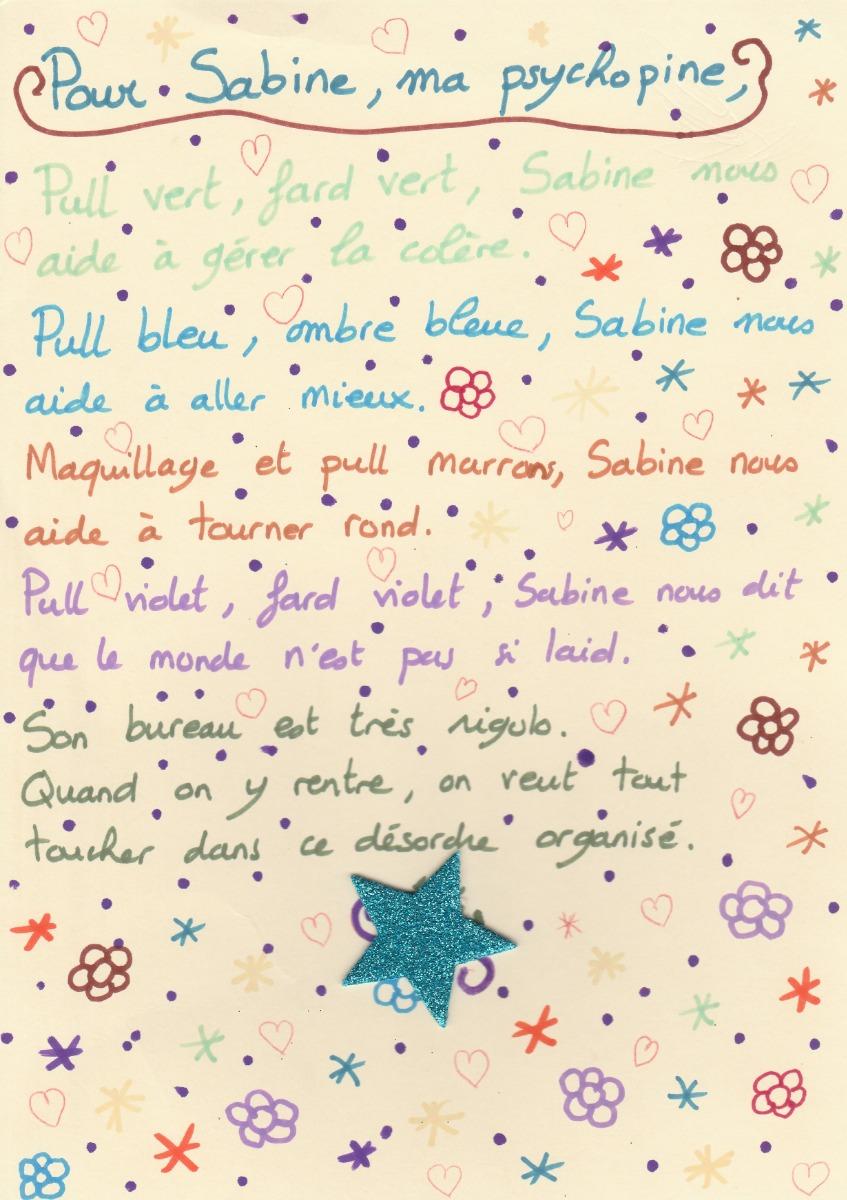 Pour Sabine, ma psychopine,
Pull vert, fard vert, Sabine nous
aide à gérer la colère.
Pull bleu, ombre bleue, Sabine nous
aide à aller mieux.
Maquillage et pull marrons, Sabine nous
aide à tourner rond.
Pull violet, fard violet, Sabine nous dit
que le monde n'est pas si laid.
Son bureau est très rigolo.
Quand on y rentre, on veut tout
toucher dans ce désordre organisé.